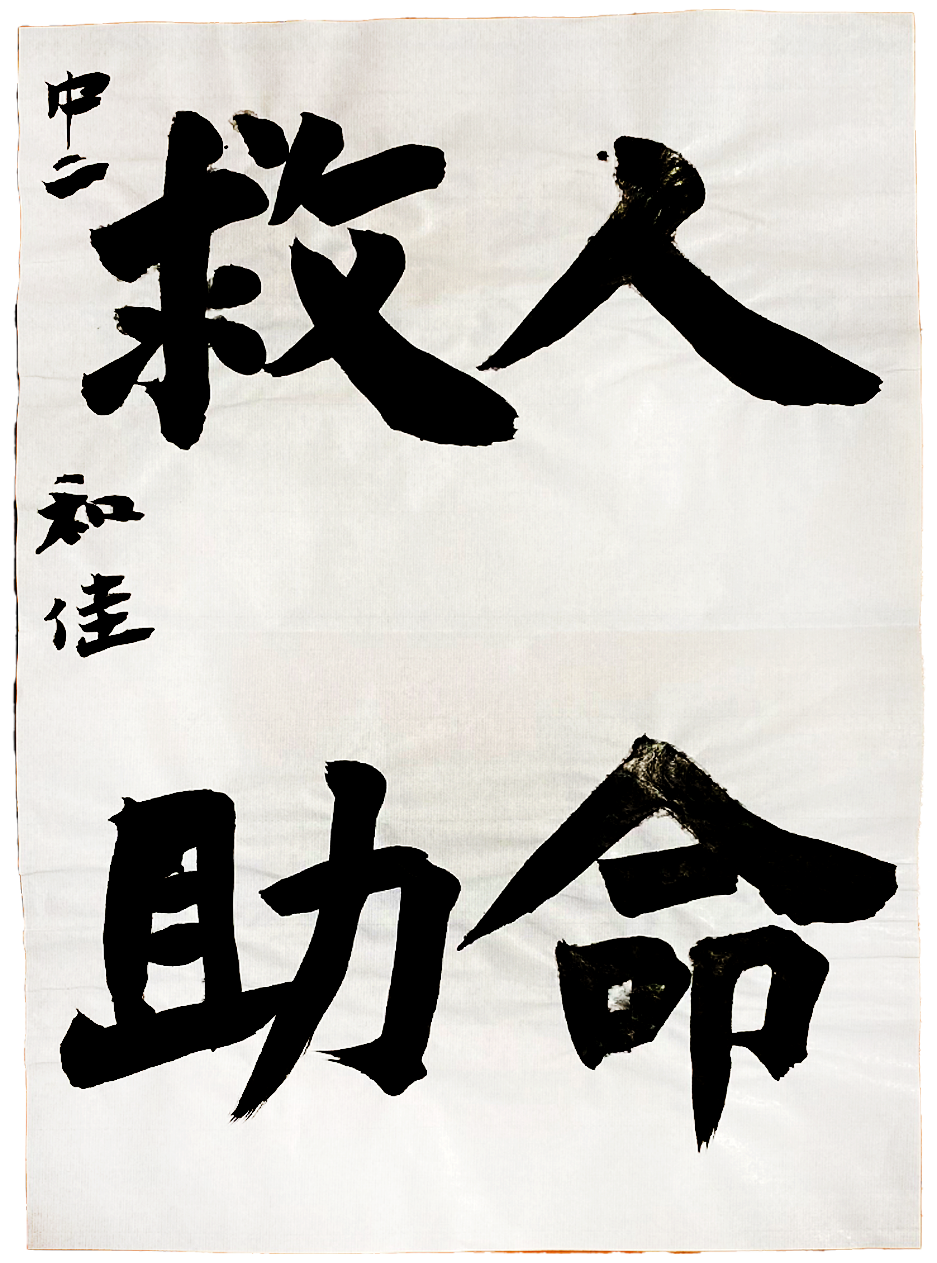 人命
救助
中二
和佳